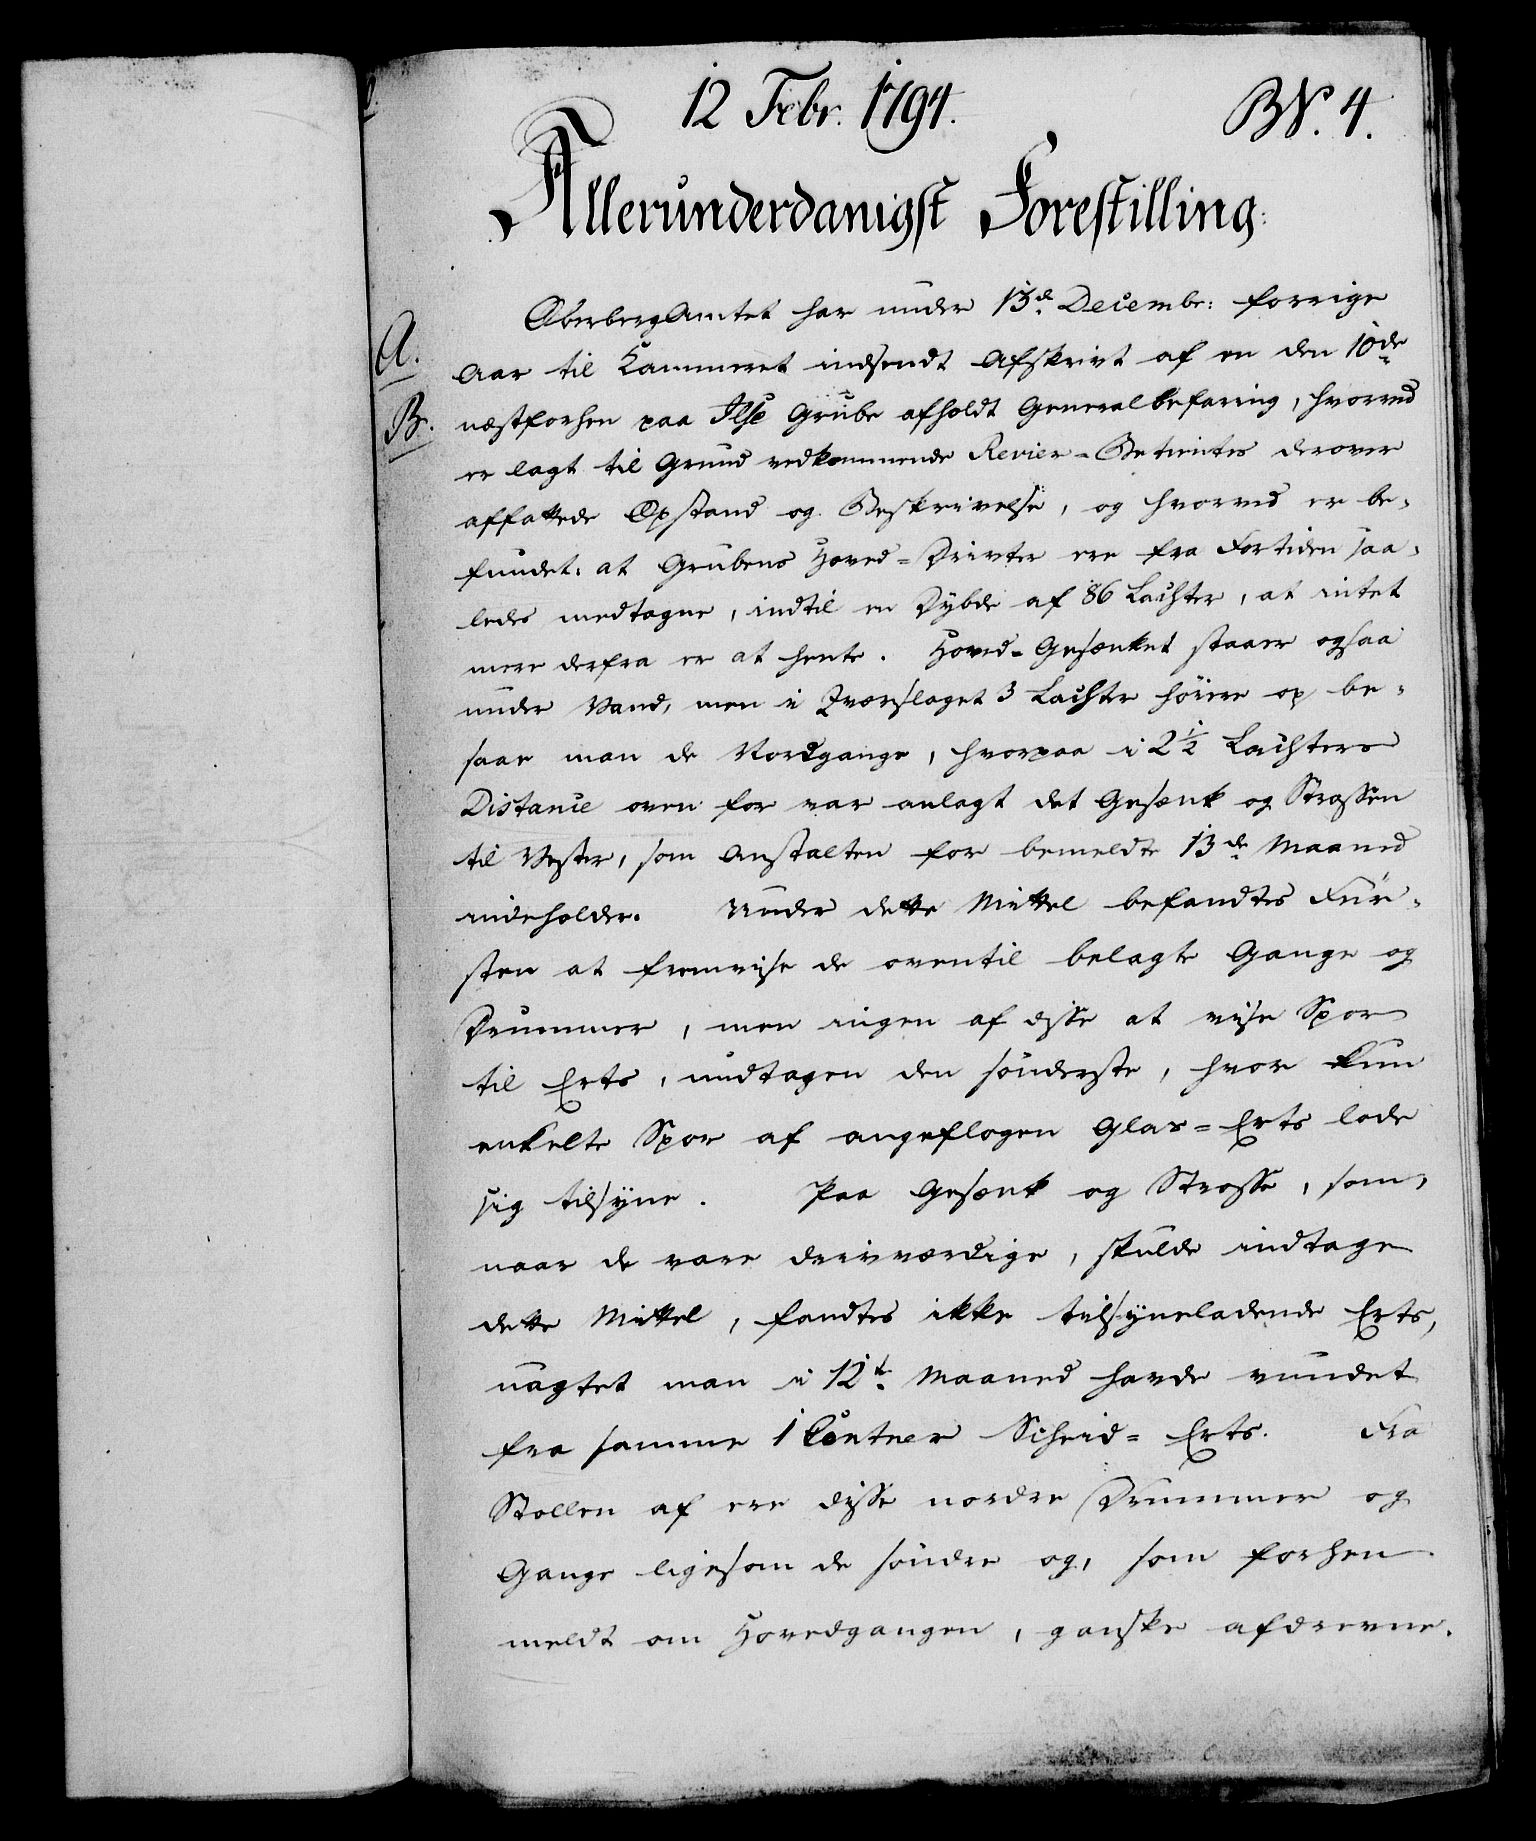 12 Febr. 1794.
BN. 4.
Allerunderdanigst Forestilling:
A.
B.
OberbergAmtet har under 13de Decembr: forrige
Aar til Kammeret indsendt Afskrivt af en den 10de
næstforhen paa Ilse Grube afholdt Generalbefaring, hvorved
er lagt til Grund vedkommende Revier-Betientes derover
affattede Opstand og Beskrivelse, og hvorved er be-
fundet: at Grubens Hoved-Drivter ere fra Fortiden saa-
ledes medtagne, indtil en Dybde af 86 Lachter, at intet
mere derfra er at hente. Hoved-Gesænket staaer ogsaa
under Vand, men i Tværslaget 3 Lachter höiere op be-
saae man de Nordgange, hvorpaa i 2½ Lachters
Distance oven for var anlagt det Gesænk og Strossen
til Vester, som Anstalten for bemeldte 13de Maaned
indeholder. Under dette Mittel befandtes För-
sten at fremvise de oventil belagte Gange og
Drummer, men ingen af disse at vise Spor
til Erts, undtagen den sönderste, hvor kun
enkelte Spor af angeflogen Glas-Erts lode
sig tilsyne. Paa Gesænk og Strosse, som,
naar de vare drivværdige, skulde indtage
dette Mittel, fandtes ikke tilsyneladende Erts,
uagtet man i 12te Maaned havde vundet
fra samme 1 Centner Scheid-Erts. Fra
Stollen af ere disse nordre Drummer og
Gange ligesom de söndre og, som forhen
meldt om Hovedgangen, ganske afdrevne.